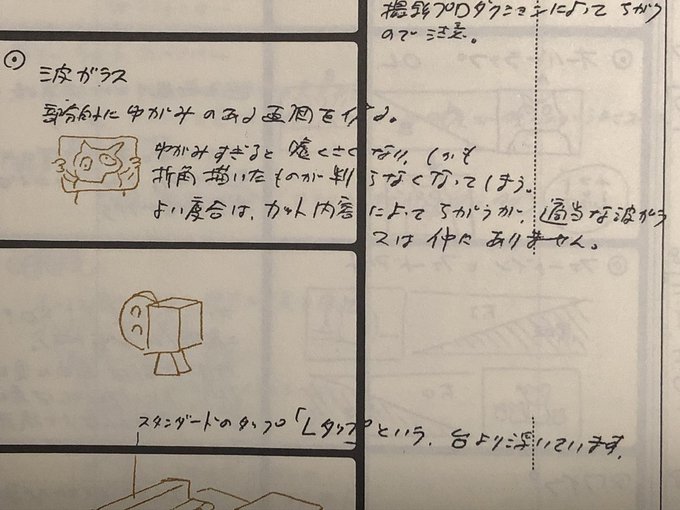 撮影プロダクションによってちがう
ので注意。
波ガラス
部分的にゆがみのある画面を作る。
ゆがみすぎると嘘くさくなり、しかも
折角描いたものが判らなくなってしまう。
よい度合は、カット内容によってちがうが、適当な波ガラ
スは仲々ありません。
スタンダードのタップ「Lタップ」という、台より浮いています。